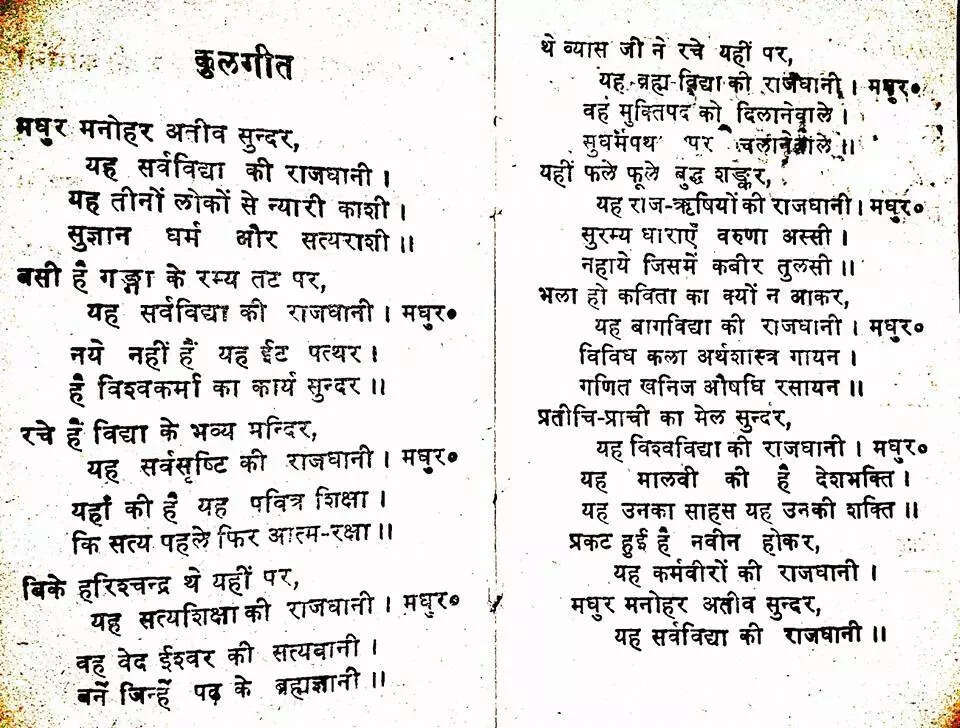 कुलगीत
मधुर मनोहर अतीव सुन्दर,
यह सर्वविद्या की राजधानी ।
यह तीनों लोकों से न्यारी काशी ।
सुज्ञान धर्म और सत्यराशी ॥
बसी है गङ्गा के रम्य तट पर,
यह सर्वविद्या की राजधानी । मधुर०
नये नहीं हैं यह ईट पत्थर ।
है विश्वकर्मा का कार्य सुन्दर ॥
रचे हैं विद्या के भव्य मन्दिर,
यह सर्वसृष्टि की राजधानी । मधुर०
यहाँ की है यह पवित्र शिक्षा ।
कि सत्य पहले फिर आत्म-रक्षा ॥
बिके हरिश्चन्द्र थे यहीं पर,
यह सत्यशिक्षा की राजधानी । मधुर०
वह वेद ईश्वर की सत्यबानी ।
बनें जिन्हें पढ़ के ब्रह्मज्ञानी ॥
थे व्यास जी ने रचे यहीं पर,
यह-ब्रह्म-विद्या की राजधानी । मधुर०
वह मुक्तिपद को दिलानेवाले ।
सुधर्मपथ पर चलानेवाले ॥
यहीं फले फूले बुद्ध शङ्कर,
यह राज-ऋषियों की राजधानी । मधुर०
सुरम्य धाराएँ वरुणा अस्सी ।
नहाये जिसमें कबीर तुलसी ॥
भला हो कविता का क्यों न आकर,
यह बागविद्या की राजधानी । मधुर०
विविध कला अर्थशास्त्र गायन ।
गणित खनिज औषधि रसायन ॥
प्रतीचि-प्राची का मेल सुन्दर,
यह विश्वविद्या की राजधानी । मधुर०
यह मालवी की है देशभक्ति ।
यह उनका साहस यह उनकी शक्ति ॥
प्रकट हुई है नवीन होकर,
यह कर्मवीरों की राजधानी ।
मधुर मनोहर अतीव सुन्दर,
यह सर्वविद्या की राजधानी ॥